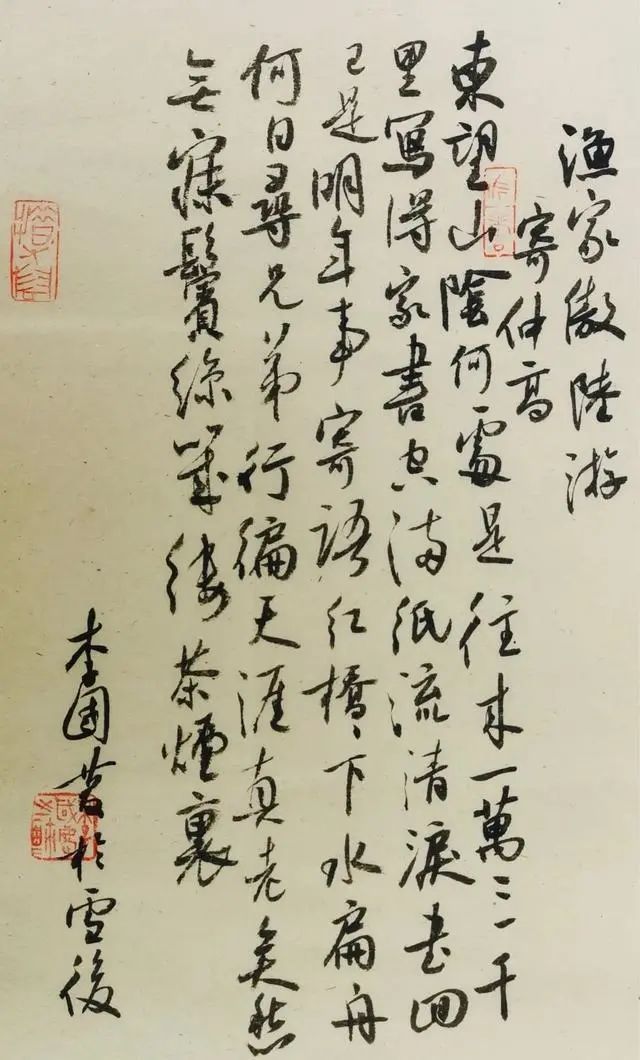 漁家傲陸游
寄仲高
東望山陰何處是往来一萬三千
里寫得家書空滿紙流清淚書回
已是明年事寄語紅橋〻下水扁舟
何日尋兄弟行徧天涯真老矣愁
無寐鬢絲幾縷茶煙裏
李國於雪後